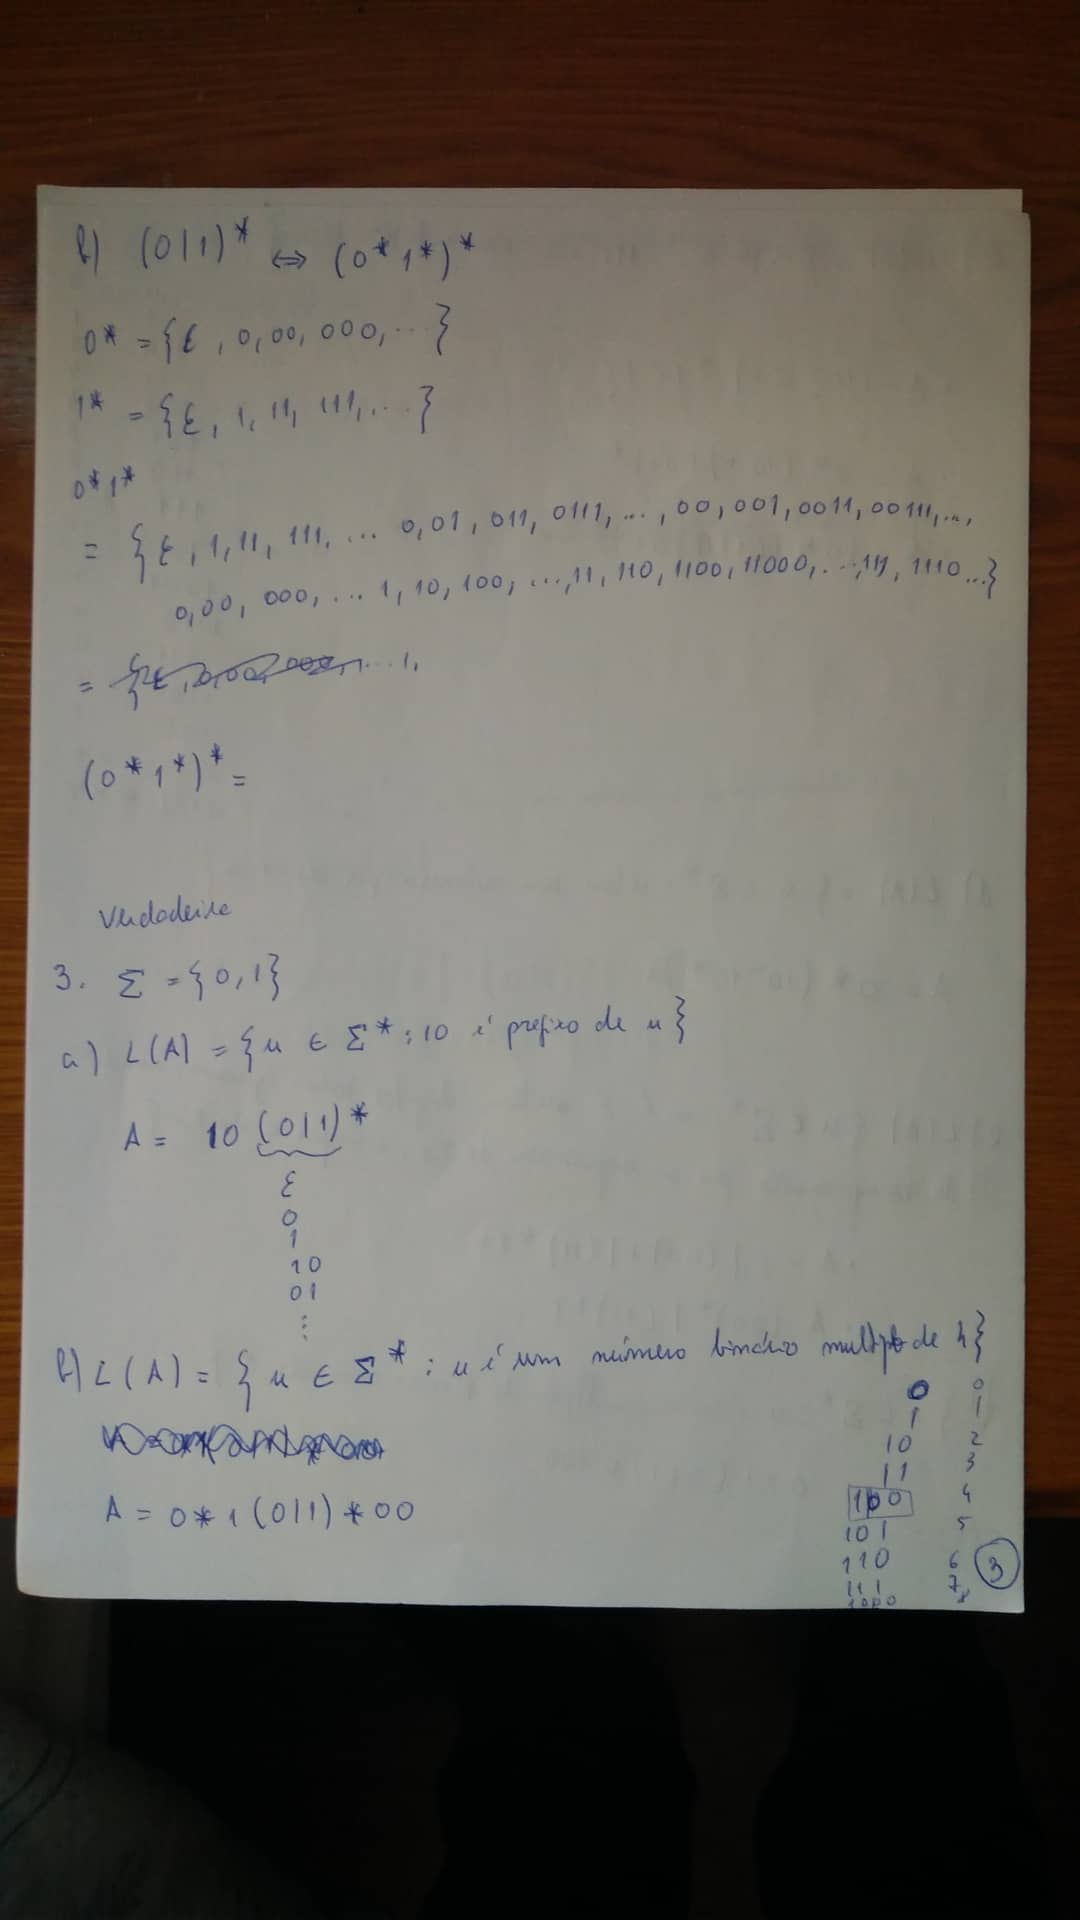 b) (0|1)* ⇔ (0*1*)*
0* = {ε, 0, 00, 000, ...}
1* = {ε, 1, 11, 111, ...}
0*1*
= {ε, 1, 11, 111, ... 0, 01, 011, 0111, ..., 00, 001, 0011, 00111, ...,
0, 00, 000, ... 1, 10, 100, ..., 11, 110, 1100, 11000, ..., 111, 1110 ...}
= ... 1,
(0*1*)* =
Verdadeira
3. Σ = {0,1}
a) L(A) = {u ∈ Σ* : 10 é prefixo de u}
A = 10 (0|1)*
ε
0
1
10
01
⋮
b) L(A) = {u ∈ Σ* : u é um número binário multiplo de 4}
0 0
1 1
10 2
11 3
100 4
A = 0*1(0|1)*00
101 5
110 6
111 7
1000 8
3